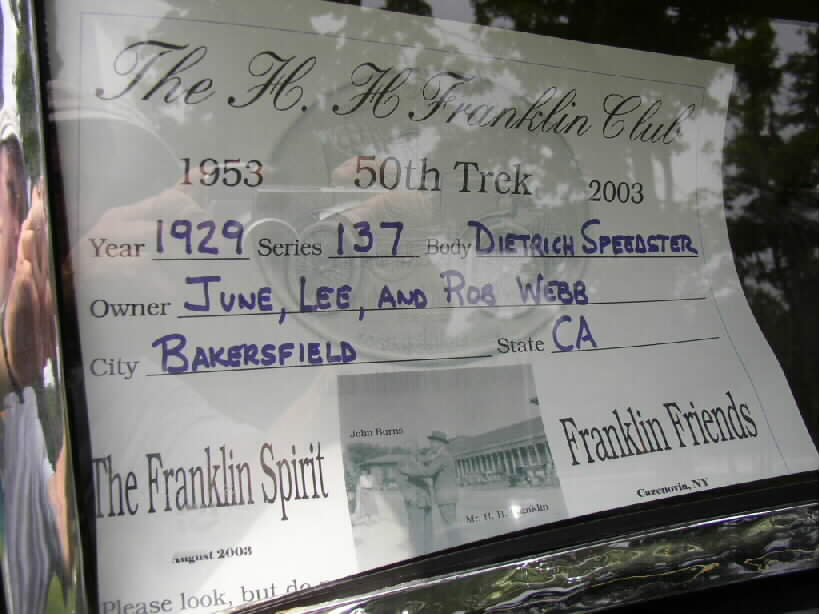 The H. H Franklin Club
1953 50th Trek 2003
Year 1929 Series 137 Body DIETRICH SPEEDSTER
Owner JUNE, LEE, AND ROB WEBB
City BAKERSFIELD State CA
The Franklin Spirit
August 2003
John Burns
Mr. H. H. Franklin
Franklin Friends
Cazenovia, NY
Please look, but do